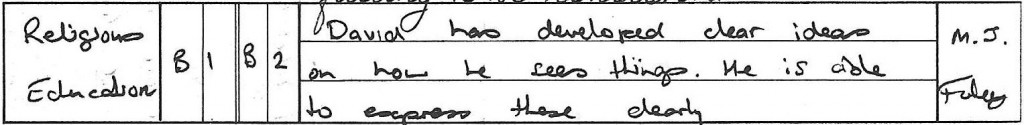 Religious Education B 1 B 2 David has developed clear ideas
on how he sees things. He is able
to express these clearly
M. J. Foley